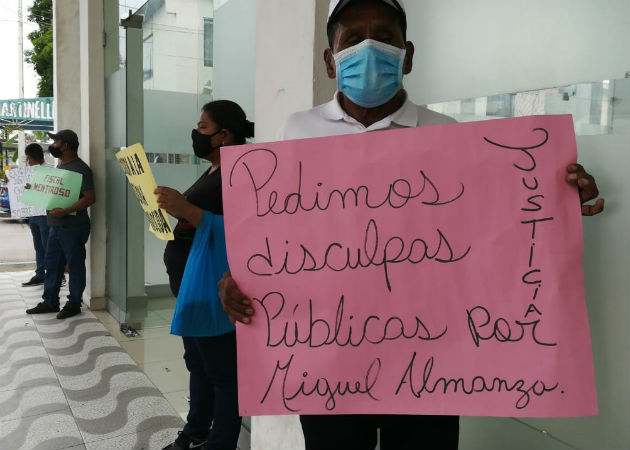 Pedimos
disculpas
Públicas por
Miguel Almanza.
JUSTICIA
FISCAL
MENTIROSO